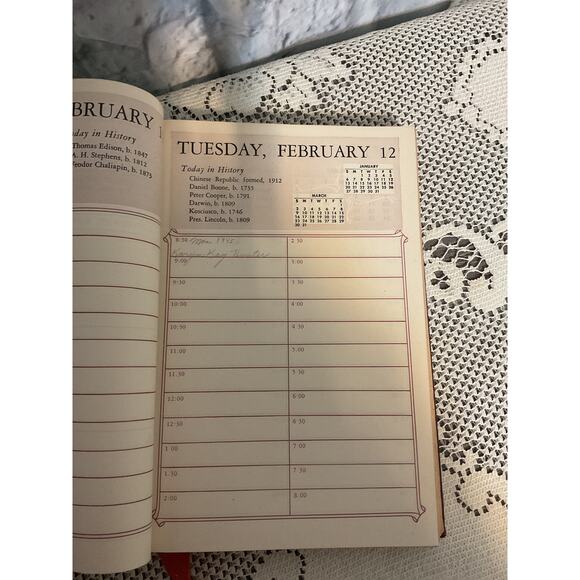 BRUARY 1
day in History
Thomas Edison, b. 1847
A. H. Stephens, b. 1812
eodor Chaliapin, b. 1873
TUESDAY, FEBRUARY 12
Today in History
Chinese Republic formed, 1912
Daniel Boone, b. 1735
Peter Cooper, b. 1791
Darwin, b. 1809
Kosciusco, b. 1746
Pres. Lincoln, b. 1809
JANUARY
S M T W T F S
MARCH
S M T W T F S
8:30 1945
Kay
9:00
9:30
10:00
10:30
11:00
11:30
12:00
12:30
1:00
1:30
2:00
2:30
3:00
3:30
4:00
4:30
5:00
5:30
6:00
6:30
7:00
7:30
8:00